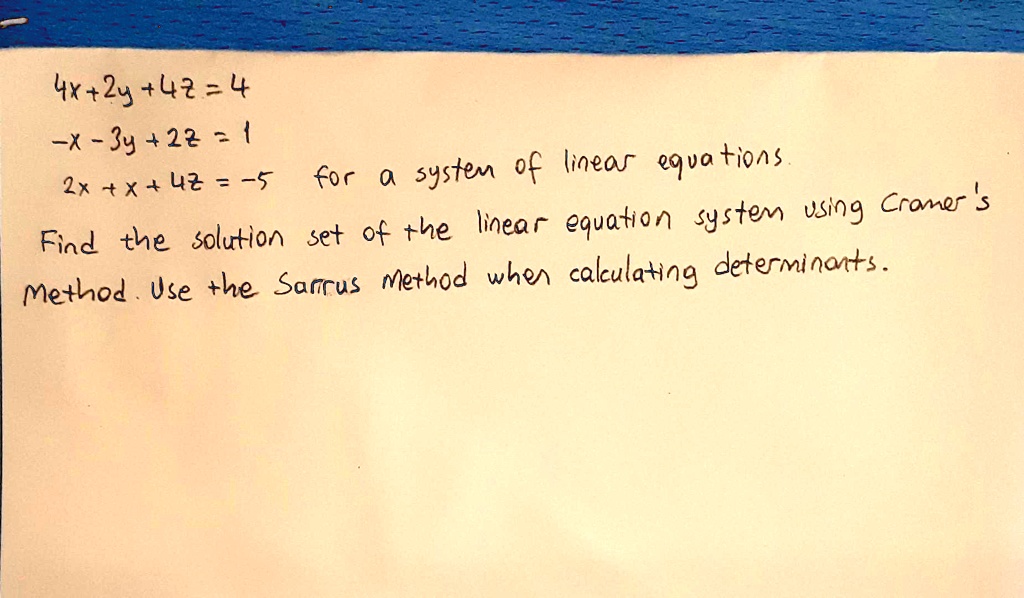 4x+2y+4z=4
-x-3y+2z=1
2x+x+4z=-5 for a system of linear equations.
Find the solution set of the linear equation system using Cramer's
Method. Use the Sarrus Method when calculating determinants.